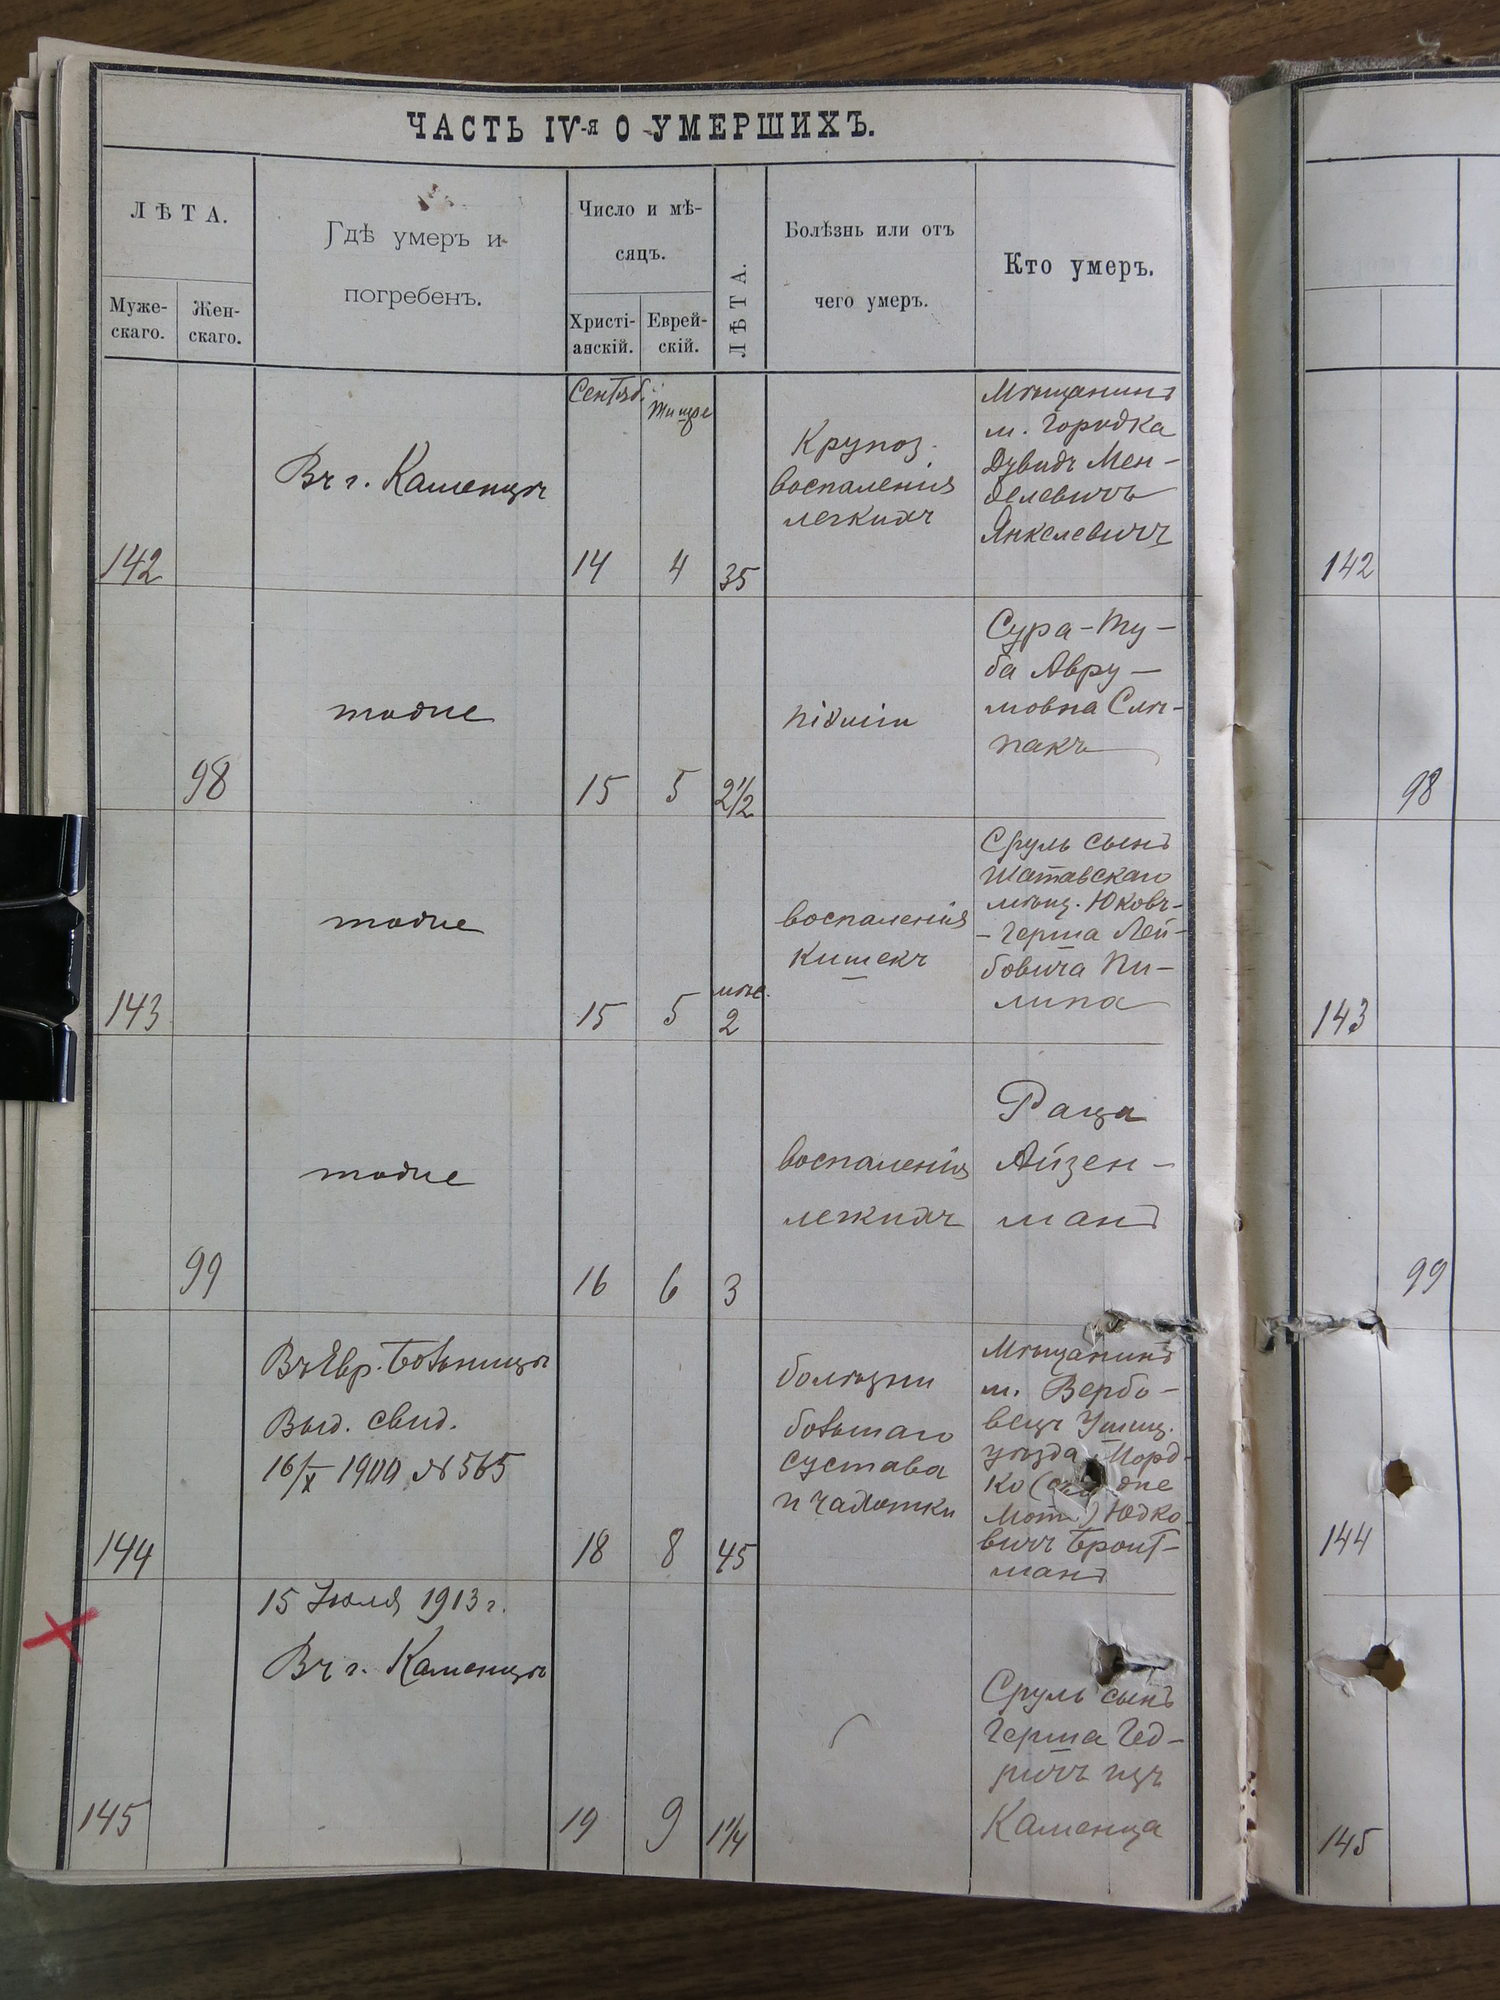 ЧАСТЬ IV-я О УМЕРШИХЪ.
ЛѢТА.
Муже-
скаго.
Жен-
скаго.
Гдѣ умеръ и
погребенъ.
Число и мѣ-
сяцъ.
Христі-
анскій.
Еврей-
скій.
ЛѢТА.
Болѣзнь или отъ
чего умеръ.
Кто умеръ.
142
Въ г. Каменцѣ
Сентяб.
14
Тишре
4
35
Крупоз.
воспаленія
легкихъ
Мѣщанинъ
м. Городка
Дувидъ Мен-
делевичъ
Янкелевичъ
142
98
тоже
15
5
2 1/2
Сура-Ту-
ба Авру-
мовна Слѣ-
пакъ
98
143
тоже
15
5
мѣс.
2
воспаленія
кишекъ
Сруль сынъ
Шатавскаго
мѣщ.
-Герша Лей-
бовича Пи-
липа
143
99
тоже
16
6
3
воспаленія
легкихъ
Айзен-
манъ
99
144
Въ Евр. больницѣ
Выд. свид.
16/X 1900 № 565
18
8
45
болѣзни
большаго
сустава
и чахотки
Мѣщанинъ
м. Вербо-
вецъ Ушиц.
уѣзда Морд-
ко
Юдко
вичъ Бронт-
манъ
144
145
15 Іюля 1913 г.
Въ г. Каменцѣ
19
9
1 1/4
Сруль сынъ
Герша Гед-
ричъ изъ
Каменца
145